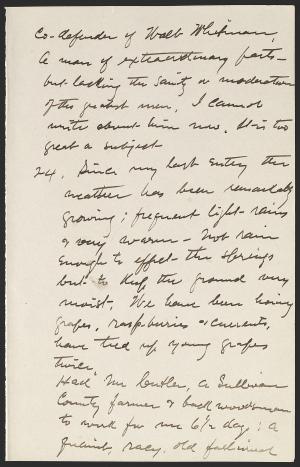 Co-defender of Walt Whitman,
A man of extraordinary parts-
but lacking the sanity & moderation
of the greatest men. I cannot
write about him now. It is too
great a subject
24. Since my last entry the
weather has been remarkably
growing; frequent light rains
& very warm - Not rain
enough to effect the springs
but to keep the ground very
moist. We have been hoeing
grapes, raspburies & currents,
have tied up young grapes
twice.
Had Mr Cutler, a Sullivan
County farmer & backwoodsman
to work for me 6½ days; a
quaint, racy, old fashioned